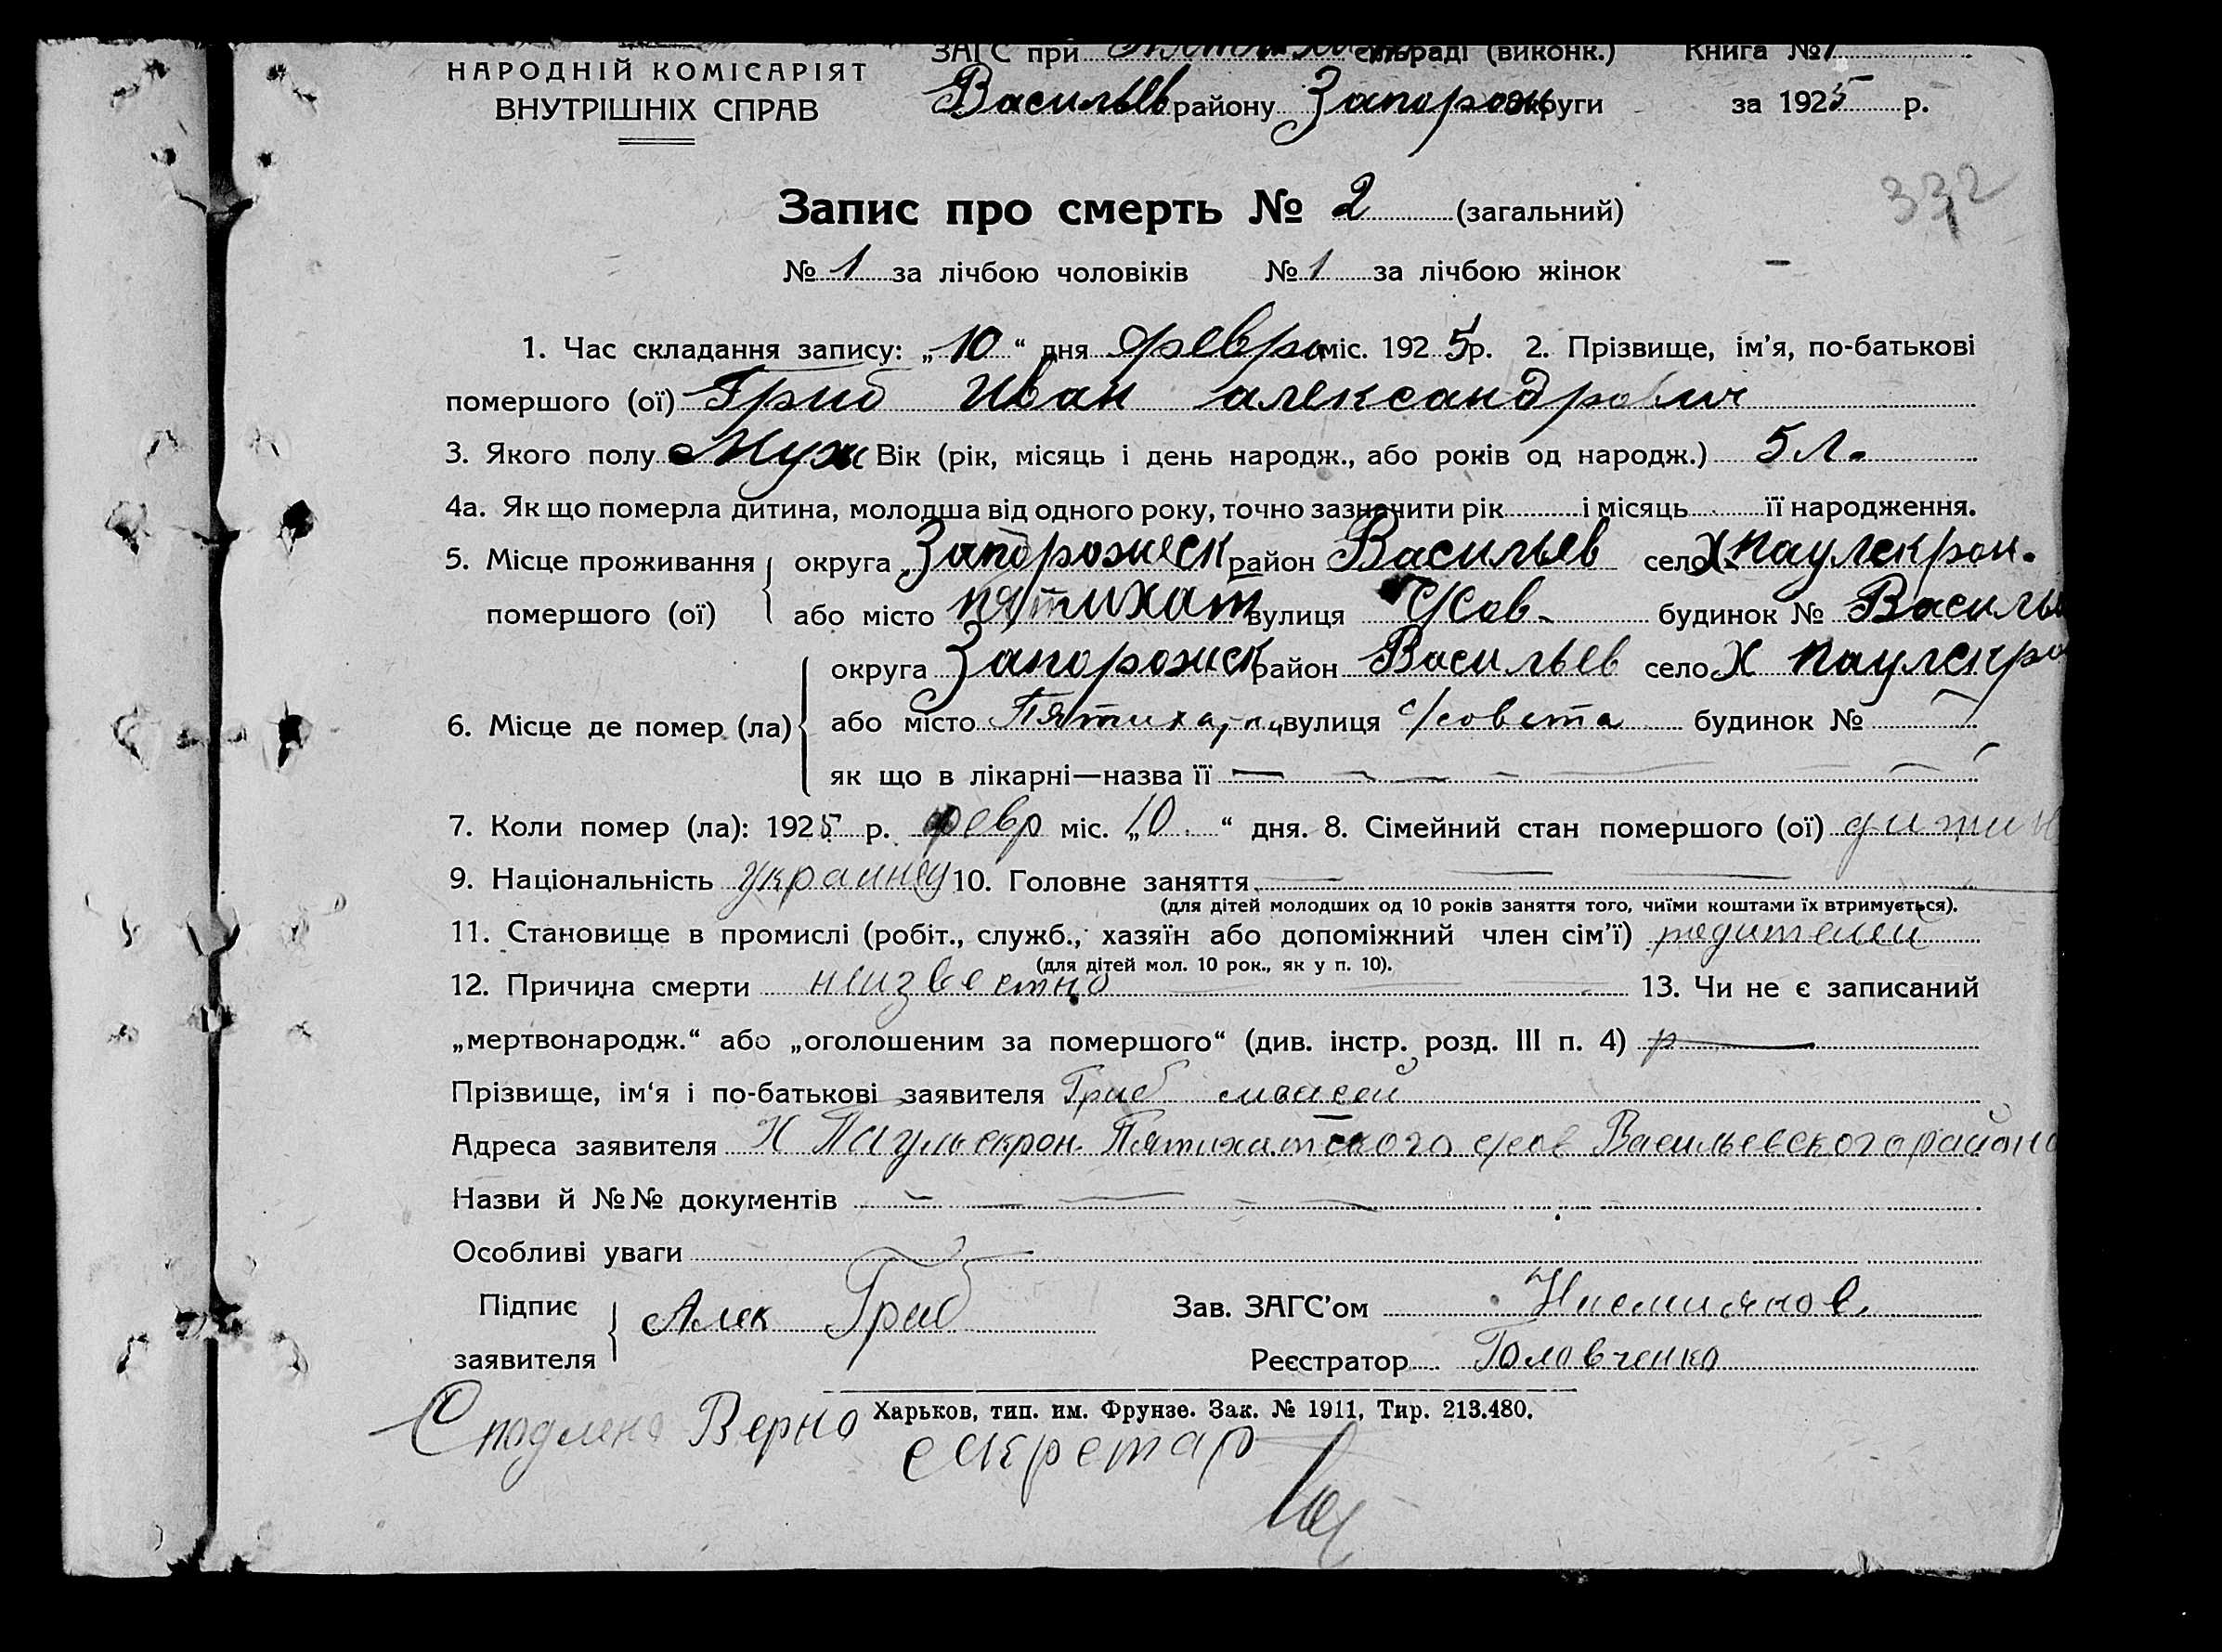 НАРОДНІЙ КОМІСАРІЯТ
ВНУТРІШНІХ СПРАВ
ЗАГС при сільраді (виконк.) Книга №1
Васильев району Запорож округи за 1925 р.
332
Запис про смерть № 2 (загальний)
№ 1 за лічбою чоловіків № 1 за лічбою жінок
1. Час складання запису: „10“ дня февра міс. 1925 р. 2. Прізвище, ім’я, по-батькові
помершого (ої) Гриб Иван александрович
3. Якого полу Муж Вік (рік, місяць і день народж., або років од народж.) 5 л.
4а. Як що померла дитина, молодша від одного року, точно зазначити рік і місяць її народження.
5. Місце проживання помершого (ої) округа Запорожск район Васильев село Х. паулькрон.
або місто пятихат вулиця с/сов. будинок № Василь
6. Місце де помер (ла) округа Запорожск район Васильев село Х паулькро
або місто Пятихат вулиця с/совета будинок № —
як що в лікарні—назва її — — — —
7. Коли помер (ла): 1925 р. февр міс. „10.“ дня. 8. Сімейний стан помершого (ої) дитин
9. Національність украинец 10. Головне заняття — — —
(для дітей молодших од 10 років заняття того, чиїми коштами їх втримується).
11. Становище в промислі (робіт., служб., хазяїн або допоміжний член сім’ї) родителей
(для дітей мол. 10 рок., як у п. 10).
12. Причина смерти неизвестно 13. Чи не є записаний
„мертвонародж.“ або „оголошеним за помершого“ (див. інстр. розд. III п. 4) —
Прізвище, ім‘я і по-батькові заявителя Гриб моисей
Адреса заявителя Х Паулькрон. Пятихатского с/сов Васильевского района
Назви й №№ документів — — — —
Особливі уваги
Підпис заявителя Алек Гриб
Зав. ЗАГС’ом
Реєстратор Головченко
Харьков, тип. им. Фрунзе. Зак. № 1911, Тир. 213.480.
Верно
секретар